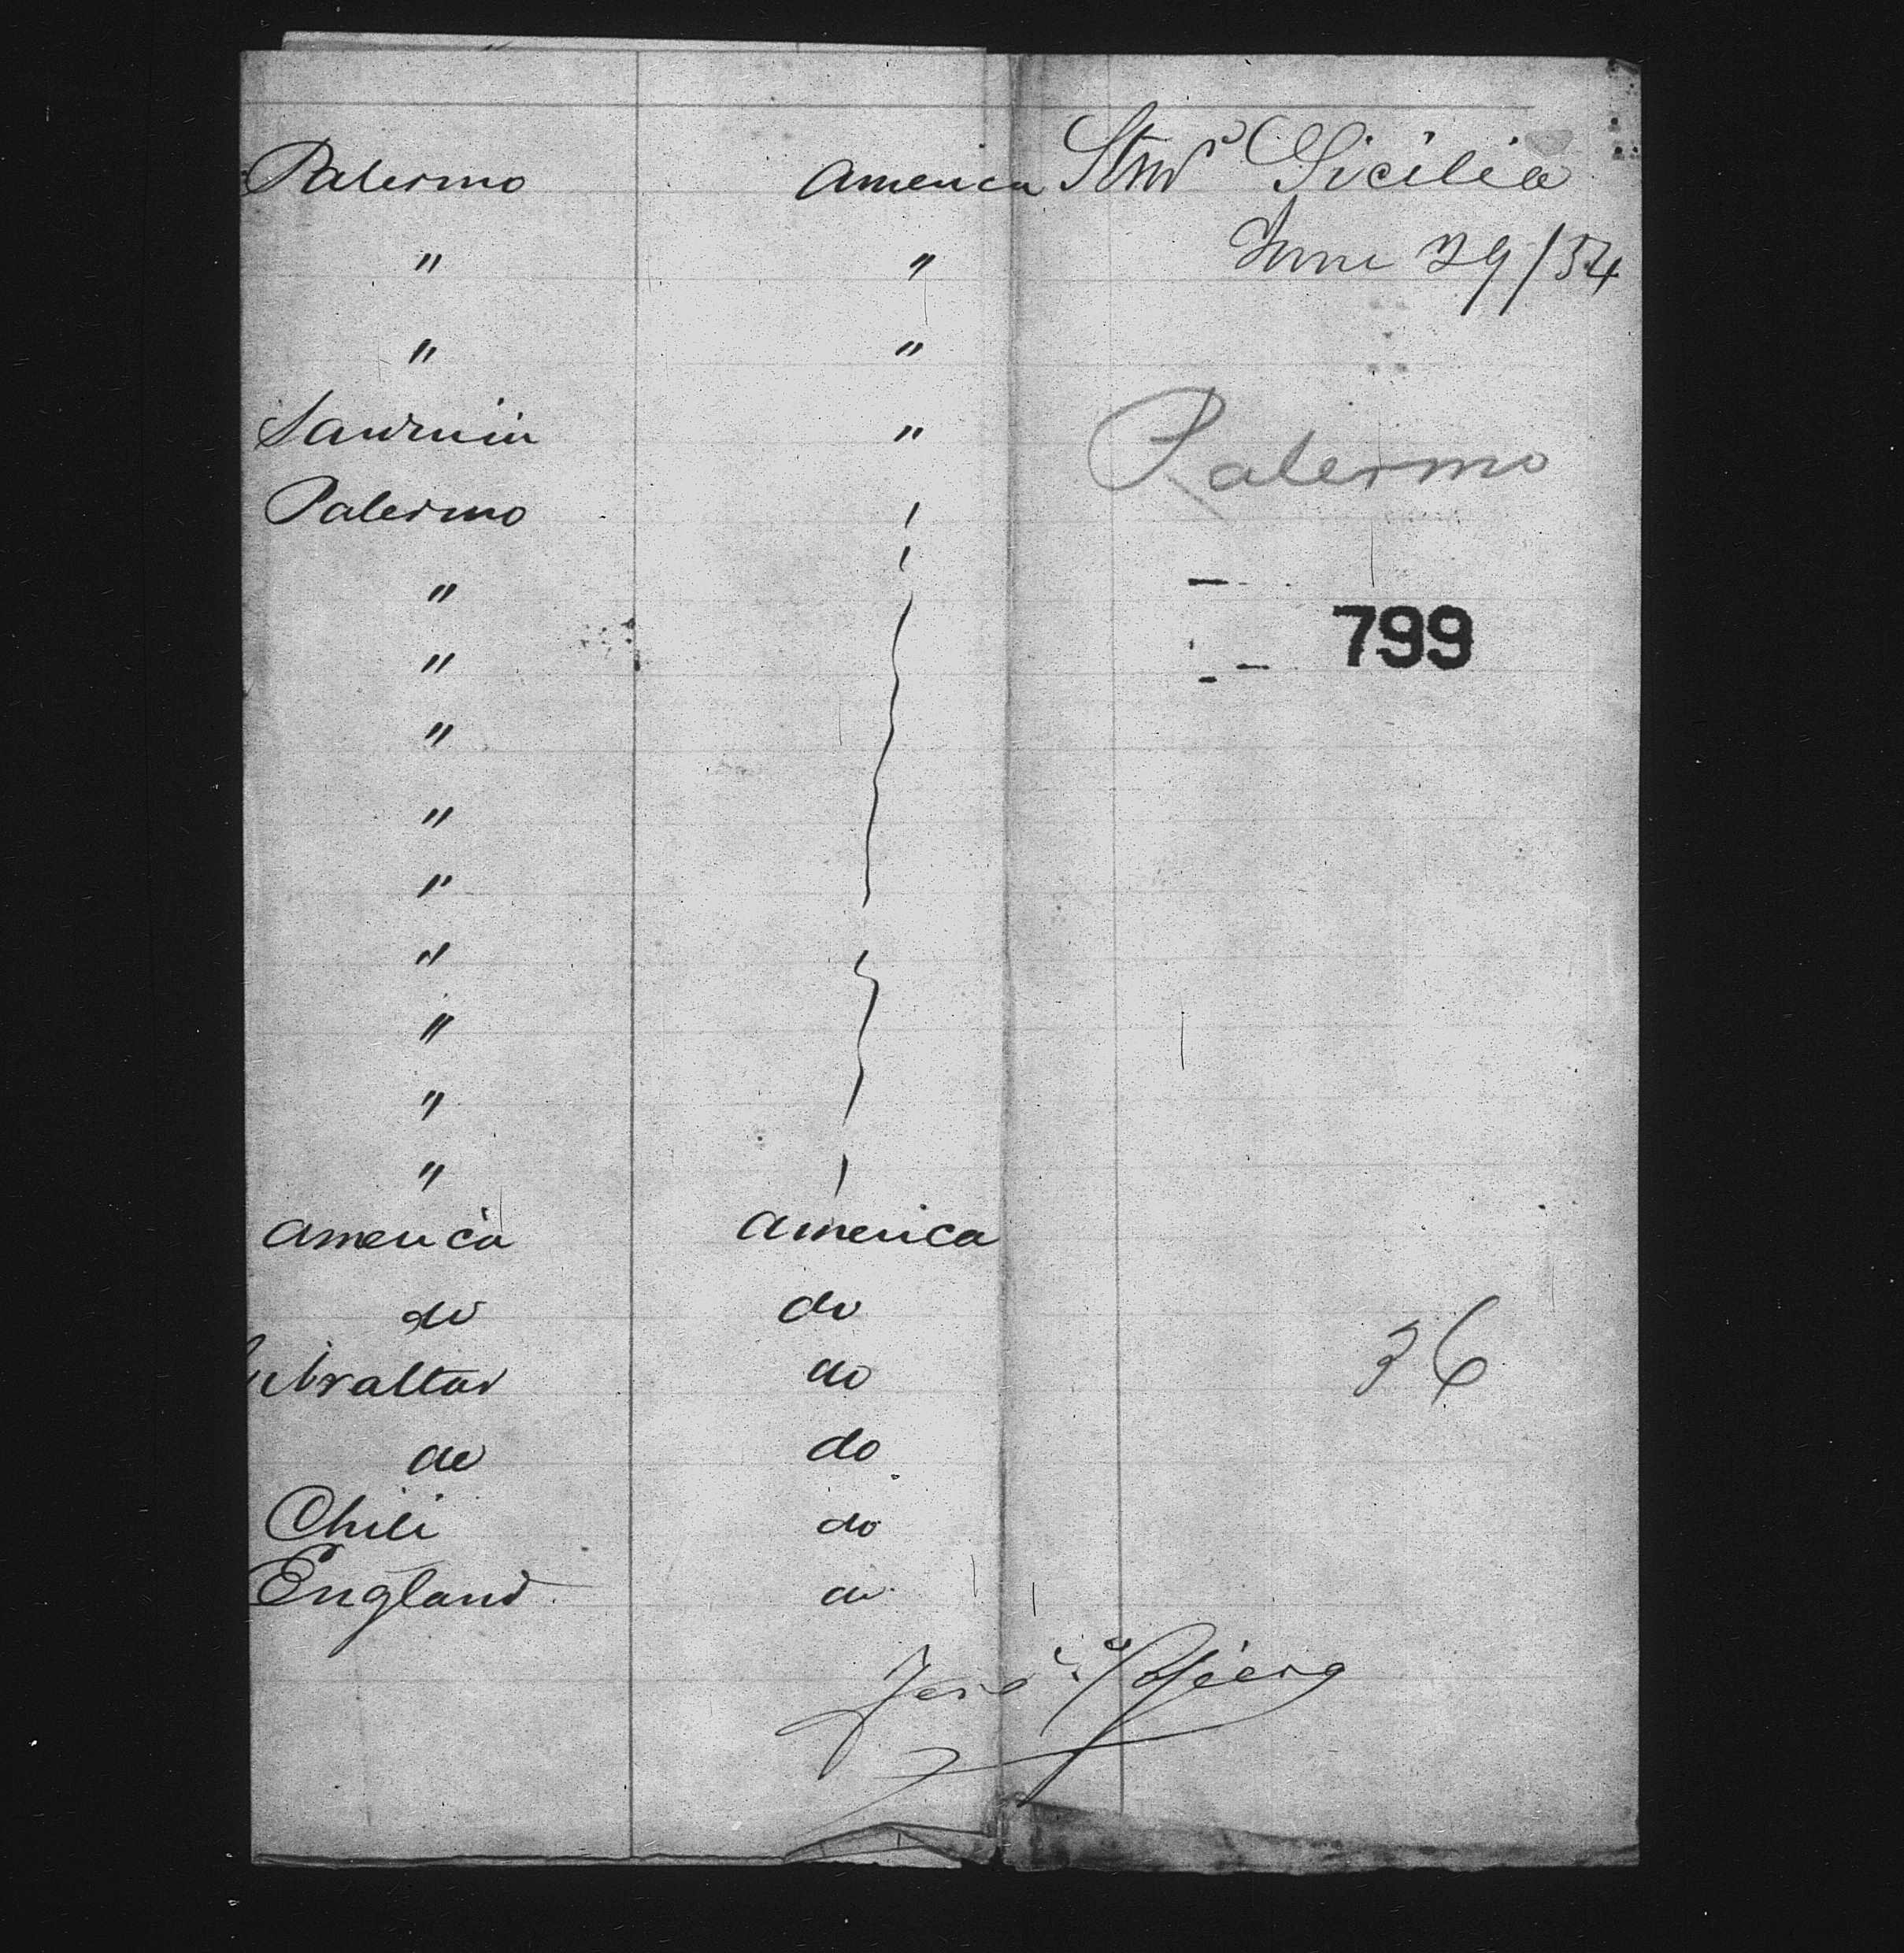 Palermo America
" "
" "
Sardinia "
Palermo
"
"
"
"
"
"
"
"
"
America America
do do
Gibraltar do
do do
Chili do
England do
Stmr Sicilia
June 29/54
Palermo
799
36